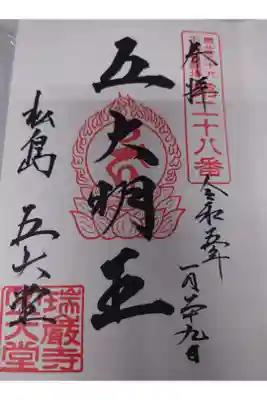 奉拝
二十八番
令和五年
一月廿九日
五大明王
松島
五大堂
瑞巌寺
五大堂